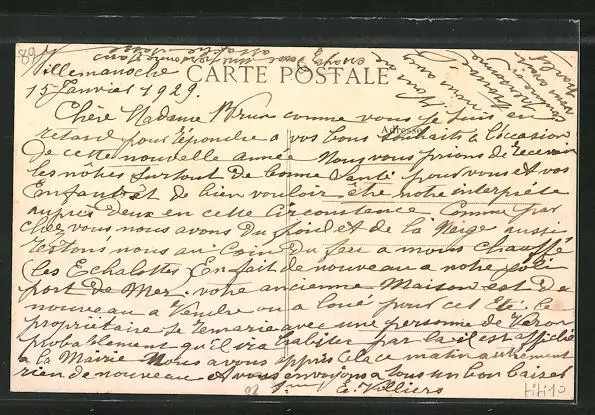 CARTE POSTALE
Adresse
Villemanoche
15 Janvier 1929.
Chère Madame Brun comme vous je suis en
retard pour répondre a vos bons souhaits a l'occasion
de cette nouvelle année Nous vous prions de recevoir
les nôtres surtout de bonne Santé pour vous et vos
Enfants et de bien vouloir être notre interprète
auprès d'eux en cette Circonstance Comme par
chez vous nous avons du froid et de la Neige aussi
restons nous au Coin du feu a nous chauffé
les Echalottes En fait de nouveau a notre joli
port de Mer. votre ancienne Maison est de
nouveau a Vendre ou a loué pour cet Eté. le
propriétaire se remarie avec une personne de Véron
probablement qu'il va habiter par la il est affiché
a la Mairie Nous avons appris cela ce matin autrement
rien de nouveau et vous envoyons a tous un bon baiser
E. Villiers
titi10